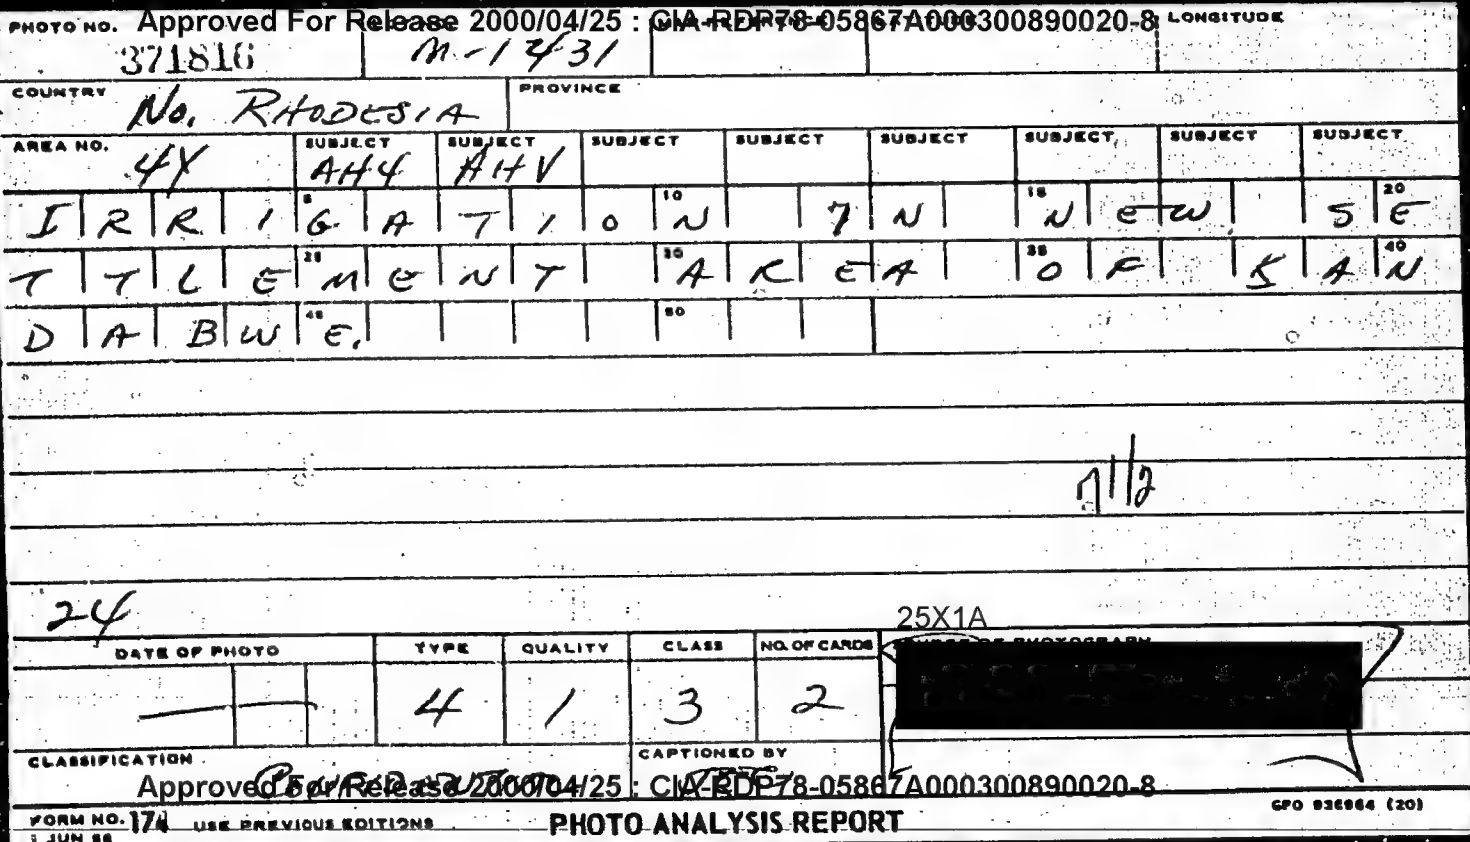 PHOTO NO. Approved For Release 2000/04/25 : CIA-RDP78-05867A000300890020-8 LONGITUDE
371816 M-12431
COUNTRY No. RHODESIA PROVINCE
AREA NO. SUBJECT SUBJECT SUBJECT SUBJECT SUBJECT SUBJECT SUBJECT SUBJECT
4Y AH4 AHV
IRRIGATION IN NEW SE
TTLEMENT AREA OF KAN
DABWE.
24
25X1A
DATE OF PHOTO TYPE QUALITY CLASS NO. OF CARDS
4 1 3 2
CLASSIFICATION CAPTIONED BY
Approved For Release 2000/04/25 : CIA-RDP78-05867A000300890020-8
GPO 936964 (20)
FORM NO. 174 USE PREVIOUS EDITIONS PHOTO ANALYSIS REPORT
1 JUN 56